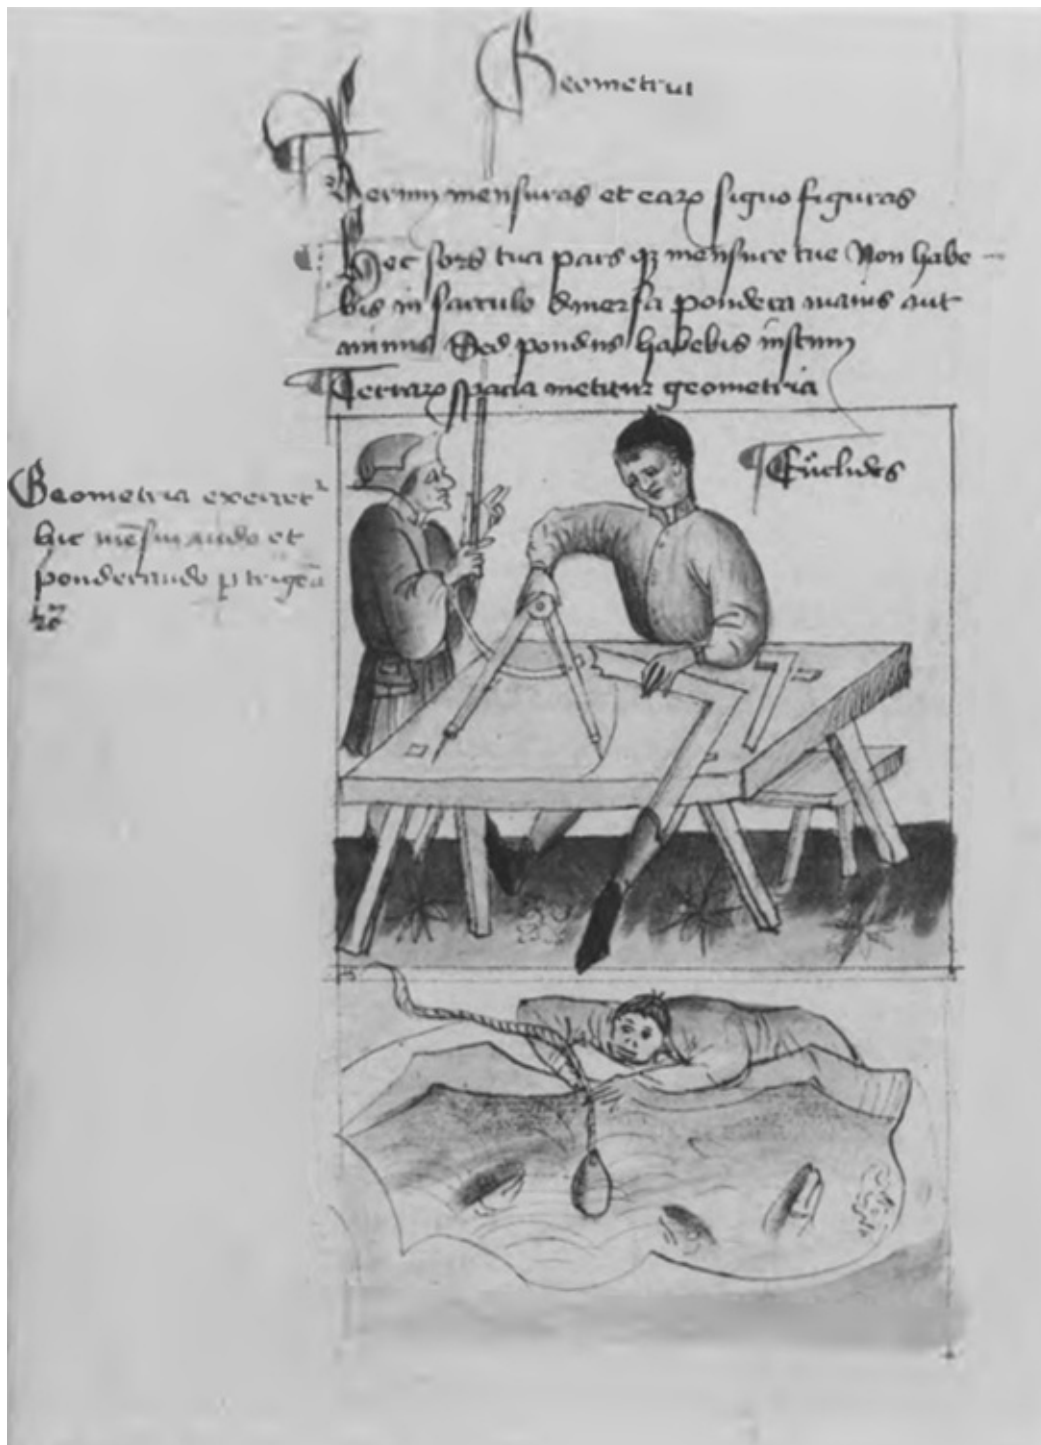 Geometria
Rerum mensuras et earꝝ signo figuras
Hec sors tua pars qꝫ mensure tue Non habe
bis in sacculo diuersa pondera maius aut
minus Sed pondus habebis iustum
Terrarꝝ spacia metitur geometria
Euclides
Geometria exercet
hic mēsurando et
ponderando p